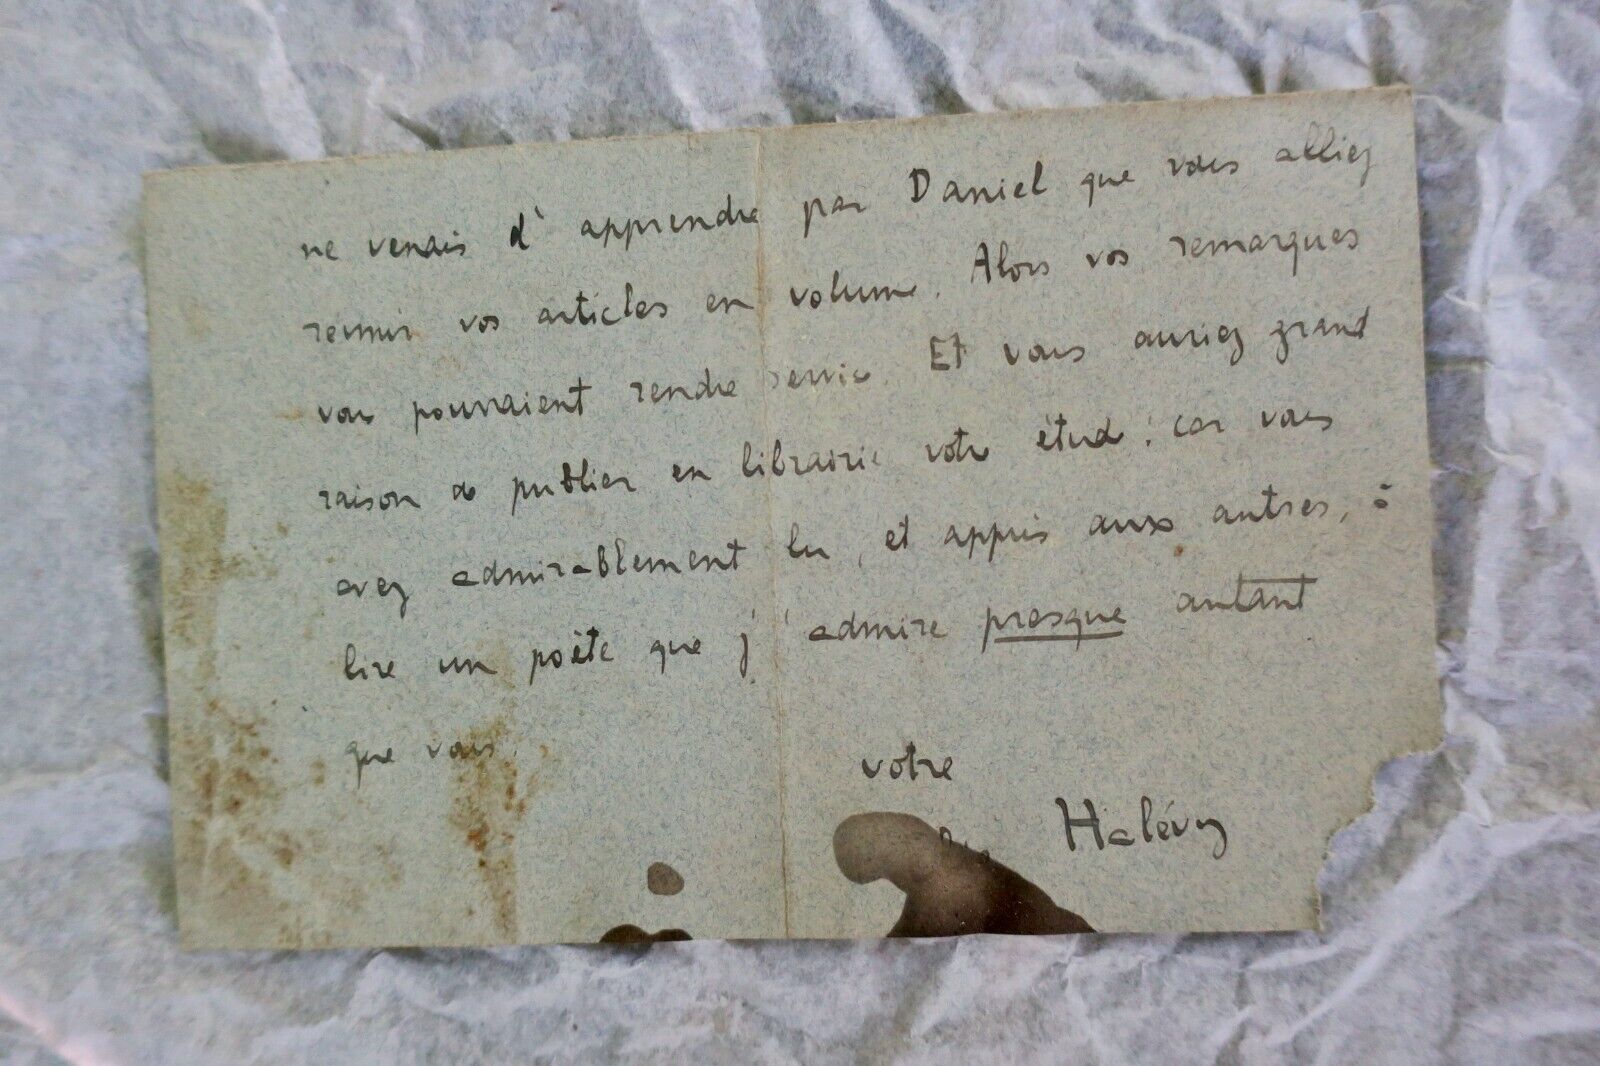 ne venais d'apprendre par Daniel que vous alliez
réunir vos articles en volume. Alors vos remarques
vous pourraient rendre service. Et vous auriez grand
raison de publier en librairie votre étude : car vous
avez admirablement lu, et appris aux autres, à
lire un poète que j'admire presque autant
que vous.
votre
Halévy